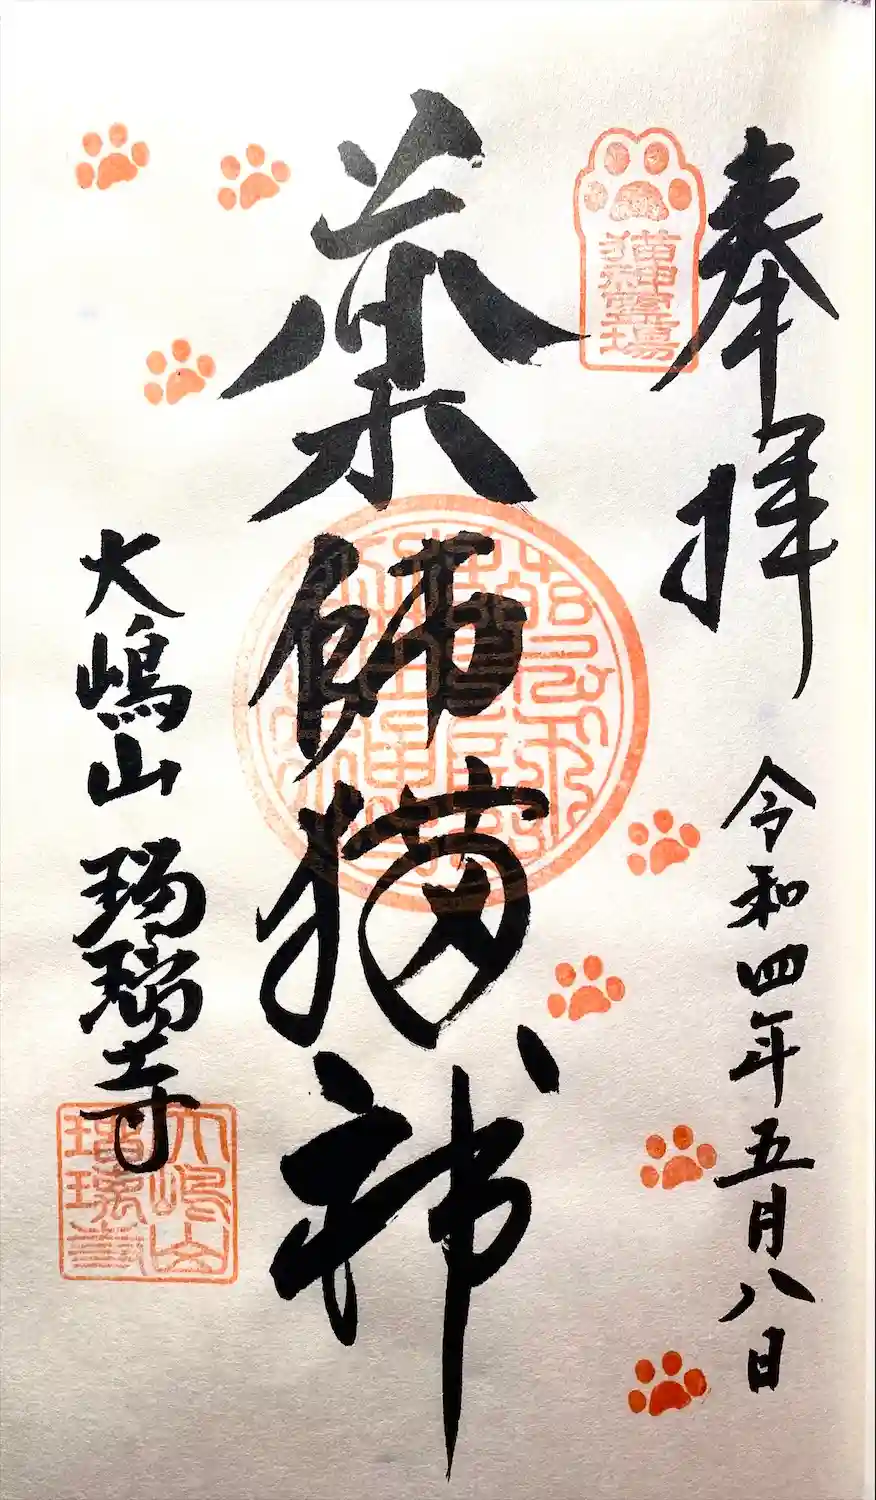 奉拝
令和四年五月八日
猫神霊場
薬師猫神
大嶋山 瑠璃寺
大嶋山
瑠璃寺